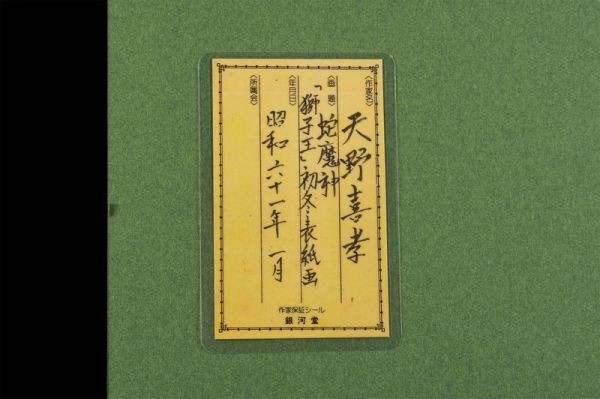 〈作家名〉
天野喜孝
〈画題〉
蛇魔神
「獅子王」初冬表紙画
〈年月日〉
昭和六十一年一月
〈所属会〉
作家保証シール
銀河堂